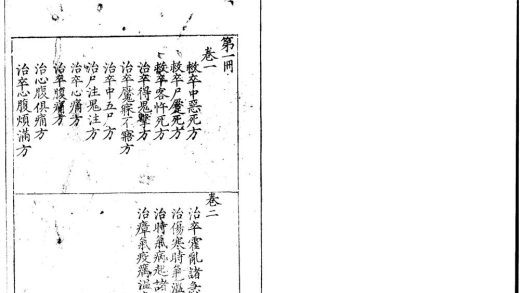 第一冊
卷一
救卒中惡死方
救卒尸蹷死方
救卒客忤死方
治卒得鬼擊方
治卒魘寐不寤方
治卒中五尸方
治尸注鬼注方
治卒心痛方
治卒腹痛方
治心腹俱痛方
治卒心腹煩滿方
卷二
治卒霍亂諸急
治傷寒時氣溫
治時氣病起諸
治瘴氣疫癘溫